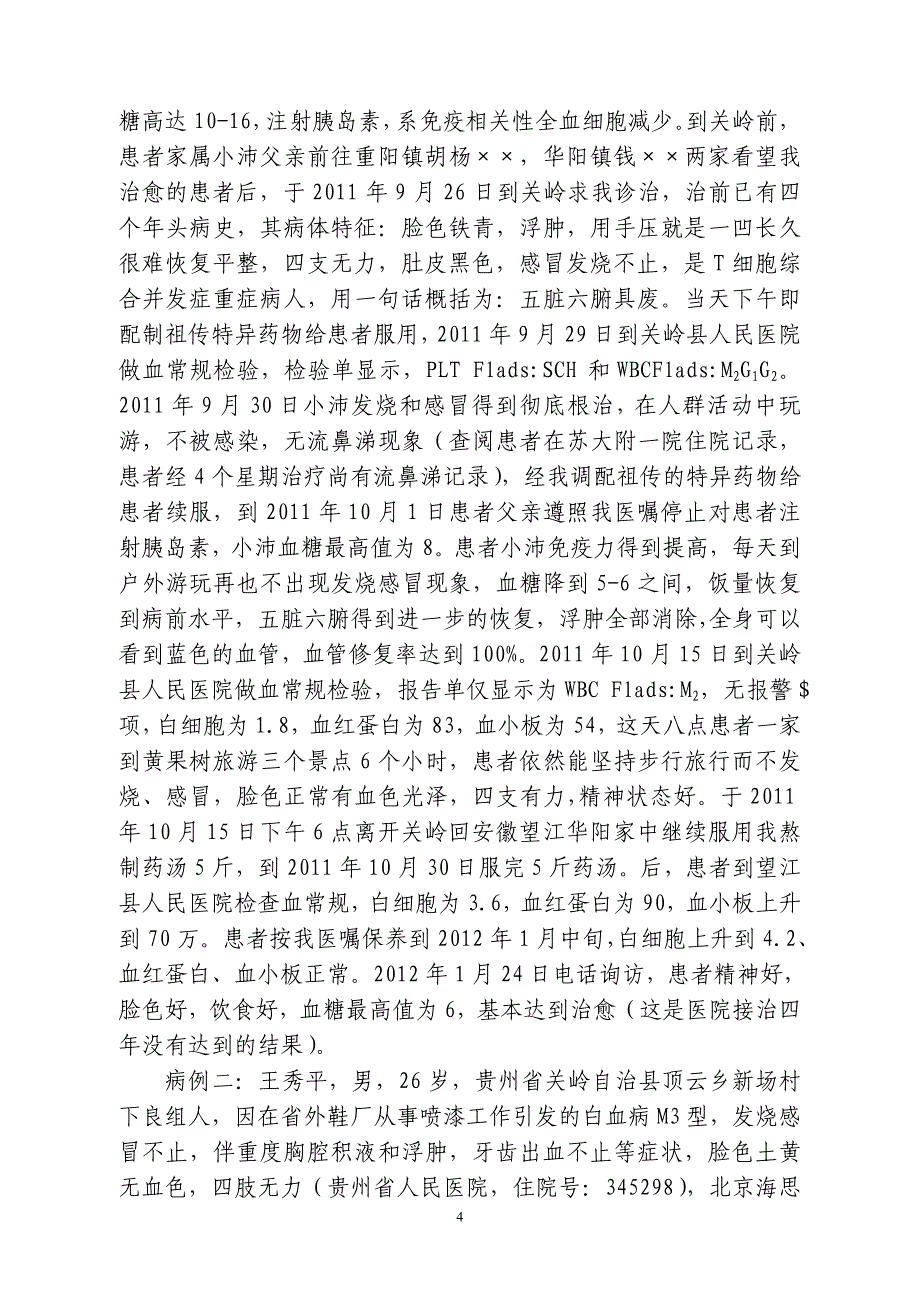 糖高达10-16,注射胰岛素,系免疫相关性全血细胞减少。到关岭前,
患者家属小沛父亲前往重阳镇胡杨××，华阳镇钱××两家看望我
治愈的患者后，于2011年9月26日到关岭求我诊治，治前已有四
个年头病史，其病体特征：脸色铁青，浮肿，用手压就是一凹长久
很难恢复平整，四支无力，肚皮黑色，感冒发烧不止，是T细胞综
合并发症重症病人，用一句话概括为：五脏六腑具废。当天下午即
配制祖传特异药物给患者服用,2011年9月29日到关岭县人民医院
做血常规检验，检验单显示，PLT Flads:SCH 和WBCFlads:M₂G₁G₂。
2011年9月30日小沛发烧和感冒得到彻底根治,在人群活动中玩
游，不被感染，无流鼻涕现象（查阅患者在苏大附一院住院记录，
患者经4个星期治疗尚有流鼻涕记录),经我调配祖传的特异药物给
患者续服，到2011年10月1日患者父亲遵照我医嘱停止对患者注
射胰岛素,小沛血糖最高值为8。患者小沛免疫力得到提高，每天到
户外游玩再也不出现发烧感冒现象，血糖降到5-6之间，饭量恢复
到病前水平，五脏六腑得到进一步的恢复，浮肿全部消除,全身可以
看到蓝色的血管,血管修复率达到100%。2011年10月15日到关岭
县人民医院做血常规检验，报告单仅显示为WBC Flads:M₂，无报警$
项,白细胞为1.8，血红蛋白为83，血小板为54，这天八点患者一家
到黄果树旅游三个景点6个小时，患者依然能坚持步行旅行而不发
烧、感冒，脸色正常有血色光泽，四支有力,精神状态好。于2011
年10月15日下午6点离开关岭回安徽望江华阳家中继续服用我熬
制药汤5斤，到2011年10月30日服完5斤药汤。后，患者到望江
县人民医院检查血常规，白细胞为3.6，血红蛋白为90，血小板上升
到70万。患者按我医嘱保养到2012年1月中旬,白细胞上升到4.2、
血红蛋白、血小板正常。2012年1月24日电话询访，患者精神好，
脸色好，饮食好，血糖最高值为6，基本达到治愈（这是医院接治四
年没有达到的结果)。
病例二：王秀平，男，26岁，贵州省关岭自治县顶云乡新场村
下良组人，因在省外鞋厂从事喷漆工作引发的白血病M3型，发烧感
冒不止，伴重度胸腔积液和浮肿，牙齿出血不止等症状，脸色土黄
无血色，四肢无力（贵州省人民医院，住院号：345298)，北京海思
4